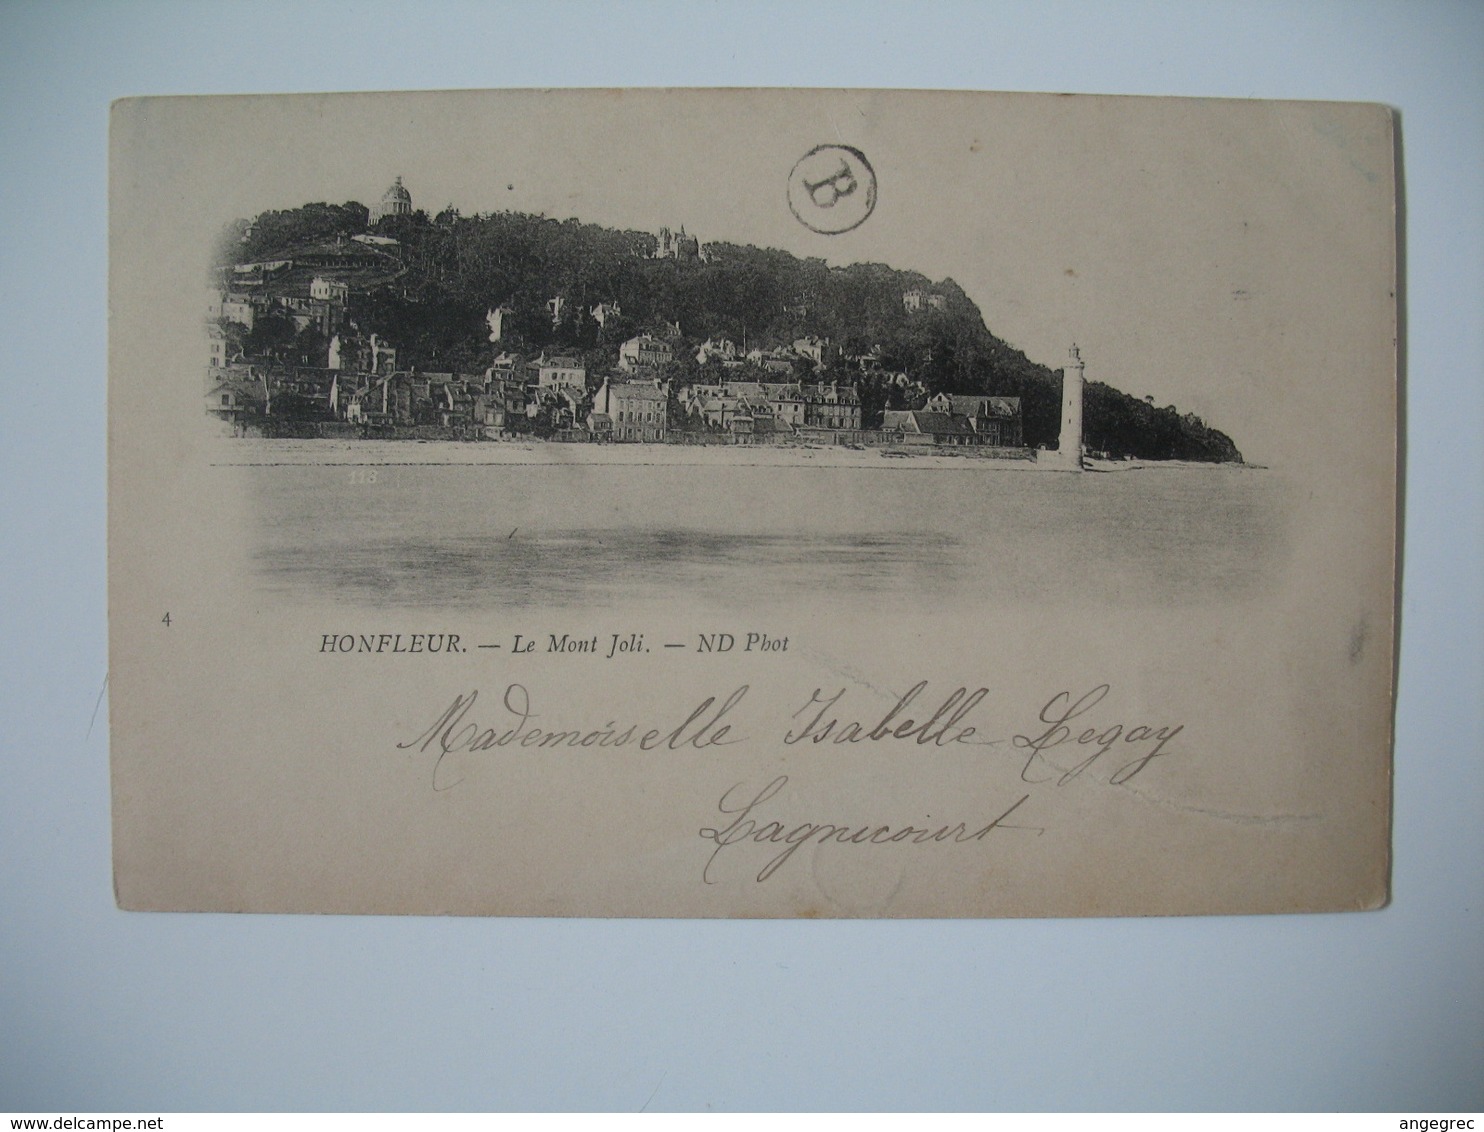 B
118
4
HONFLEUR. — Le Mont Joli. — ND Phot
Mademoiselle Isabelle Legay
Lagnicourt
www.delcampe.net
angegrec